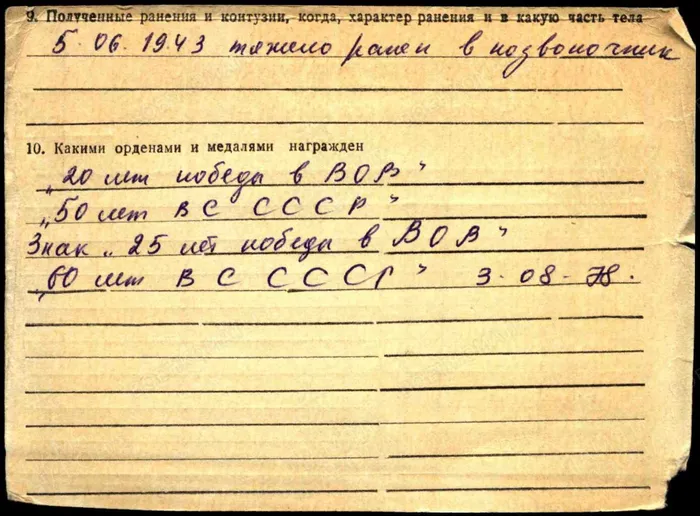 9. Полученные ранения и контузии, когда, характер ранения и в какую часть тела
5. 06. 1943 тяжело ранен в позвоночник
10. Какими орденами и медалями награжден
„20 лет победы в ВОВ"
„50 лет ВС СССР"
Знак „25 лет победы в ВОВ"
„60 лет ВС СССР" 3-08-78.